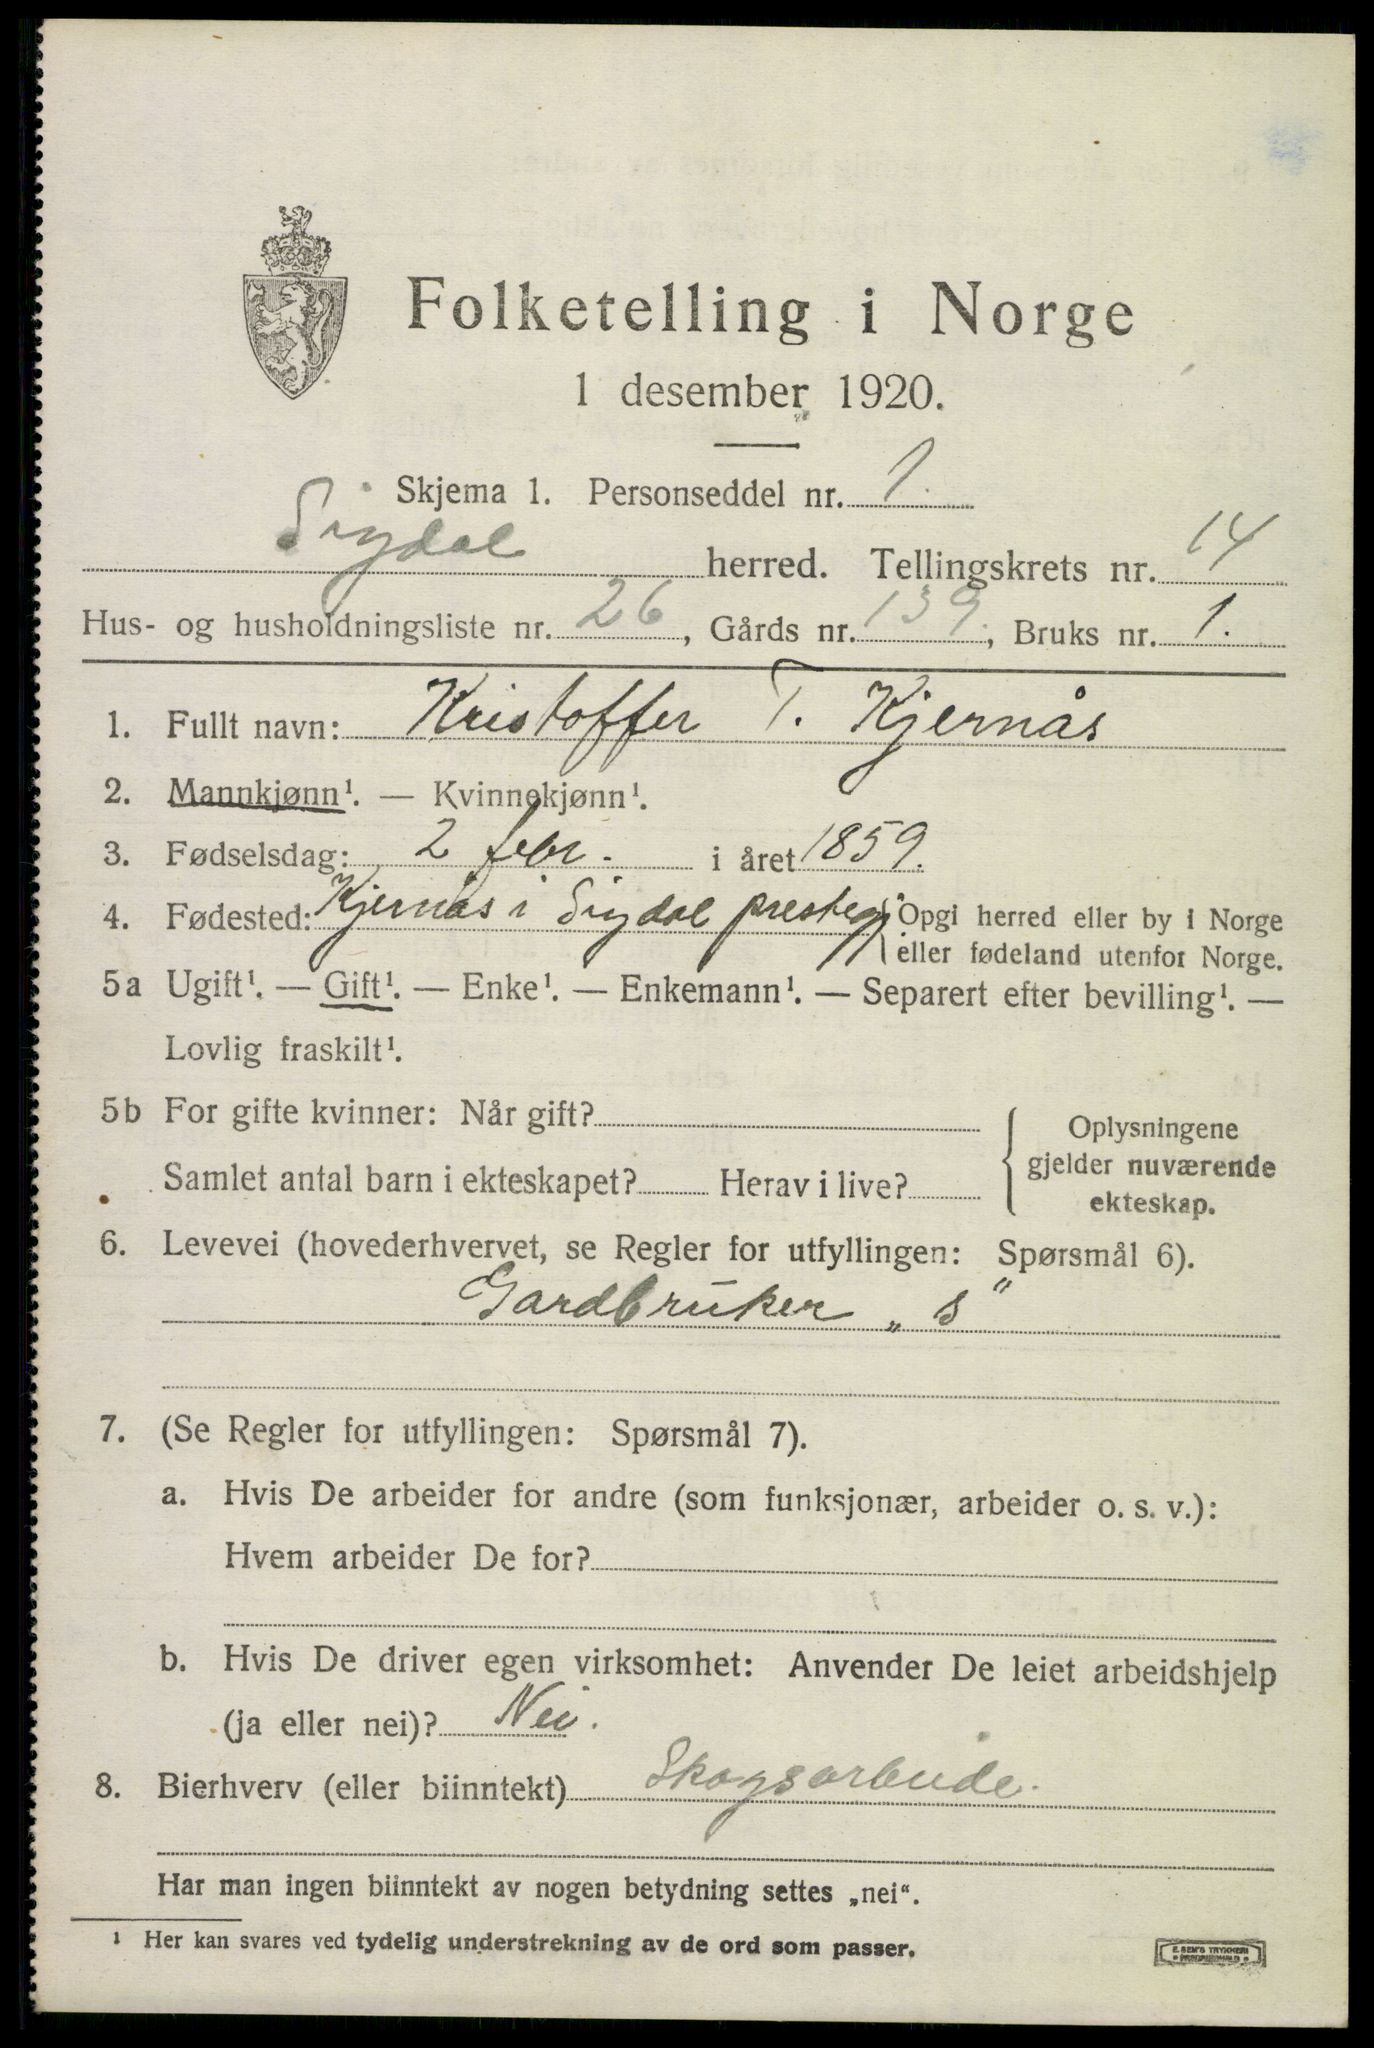 Folketelling i Norge
1 desember 1920.
Skjema 1. Personseddel nr. 1.
Sigdal herred. Tellingskrets nr. 14
Hus- og husholdningsliste nr. 26, Gårds nr. 139, Bruks nr. 1.
1. Fullt navn: Kristoffer T. Kjernås
2. Mannkjønn¹. — Kvinnekjønn¹.
3. Fødselsdag: 2 febr. i året 1859.
4. Fødested: Kjernås i Sigdal prestegj. Opgi herred eller by i Norge
eller fødeland utenfor Norge.
5a Ugift¹. — Gift¹. — Enke¹. — Enkemann¹. — Separert efter bevilling¹. —
Lovlig fraskilt¹.
5b For gifte kvinner: Når gift?
Samlet antal barn i ekteskapet? Herav i live?
Oplysningene
gjelder nuværende
ekteskap.
6. Levevei (hovederhvervet, se Regler for utfyllingen: Spørsmål 6).
Gardbruker „s“
7. (Se Regler for utfyllingen: Spørsmål 7).
a. Hvis De arbeider for andre (som funksjonær, arbeider o. s. v.):
Hvem arbeider De for?
b. Hvis De driver egen virksomhet: Anvender De leiet arbeidshjelp
(ja eller nei)? Nei.
8. Bierhverv (eller biinntekt) Skogsarbeide.
Har man ingen biinntekt av nogen betydning settes „nei“.
¹ Her kan svares ved tydelig understrekning av de ord som passer.
E. SEM'S TRYKKERI